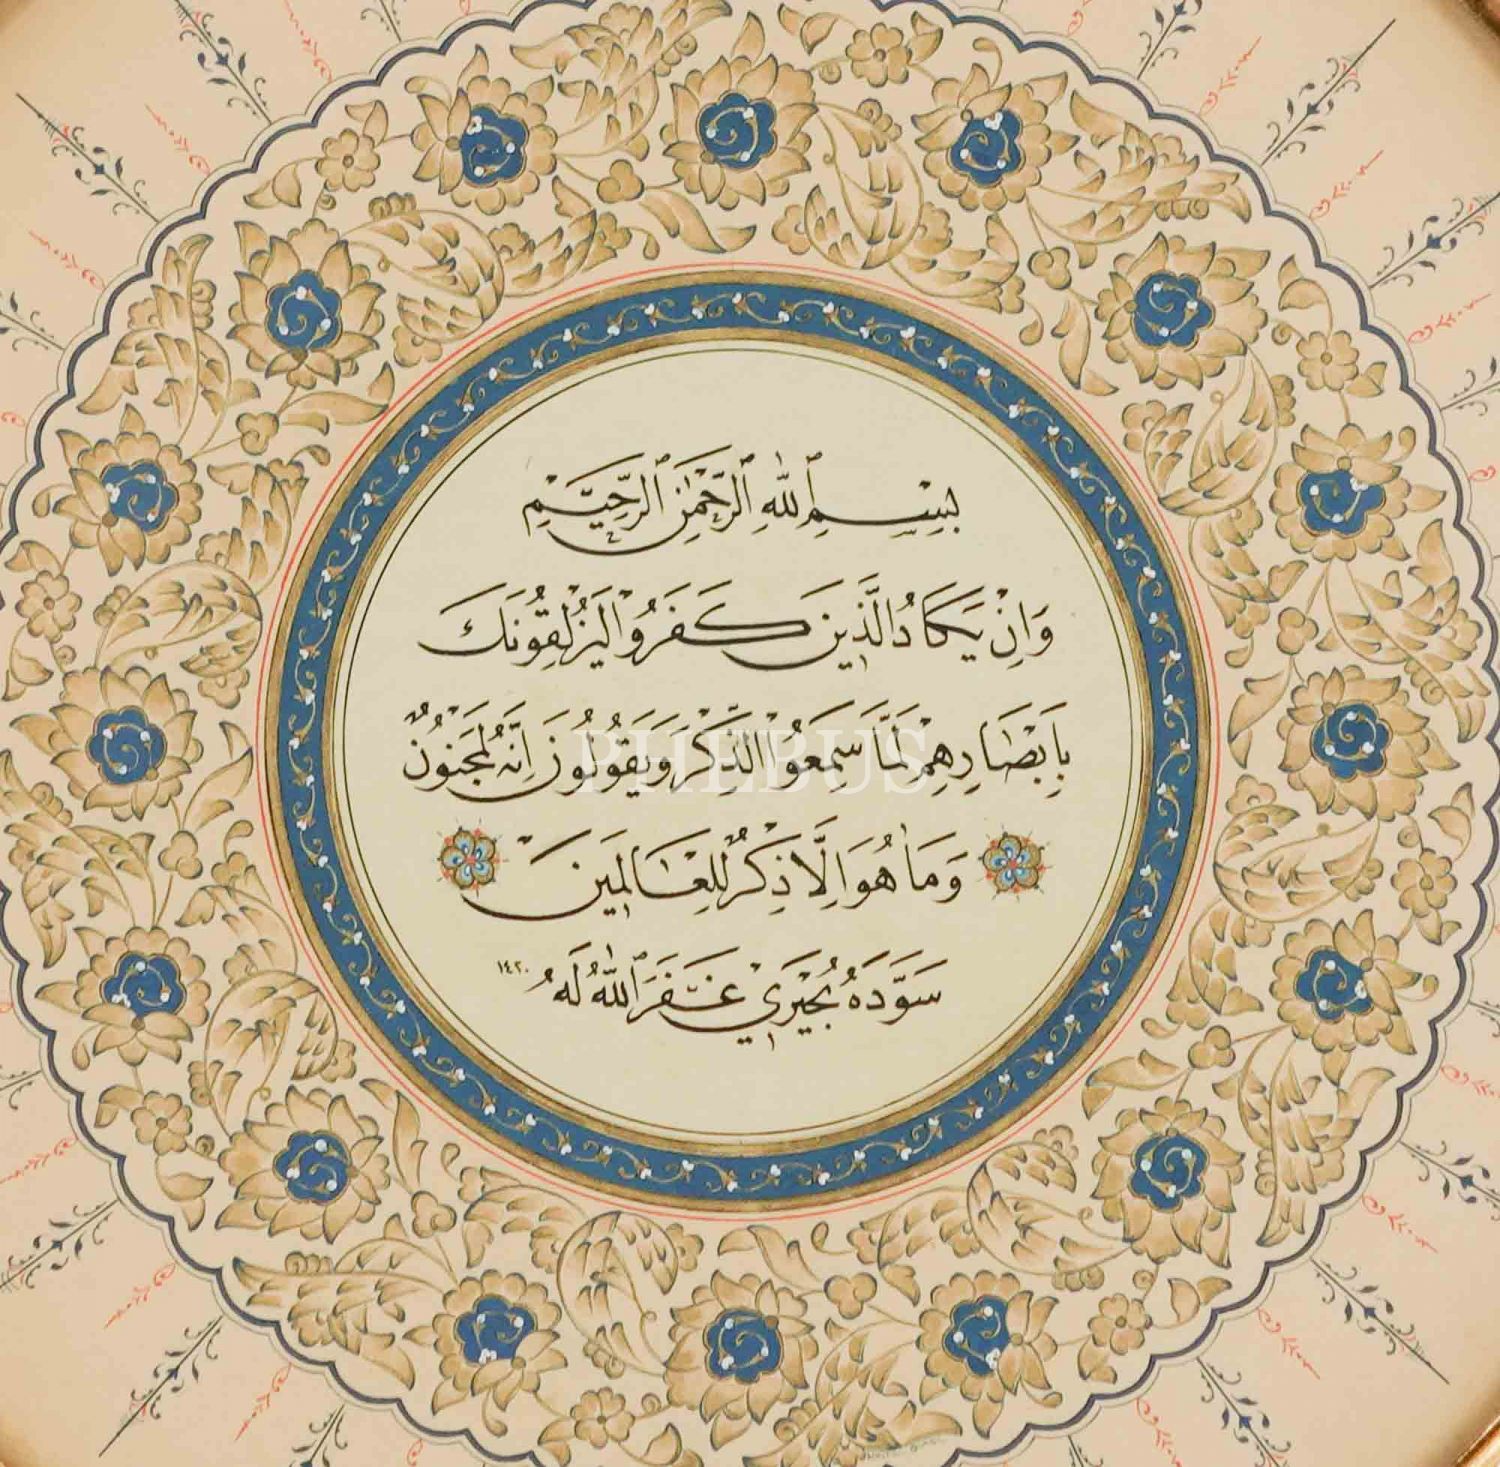 بِسْمِ ٱللّٰهِ ٱلرَّحْمٰنِ ٱلرَّحِيمِ
وَاِنْ يَكَادُ الَّذِينَ كَفَرُوا لَيُزْلِقُونَكَ
بِاَبْصَارِهِمْ لَمَّا سَمِعُوا الذِّكْرَ وَيَقُولُونَ اِنَّهُ لَمَجْنُونٌ
PHEBUS
وَمَا هُوَ اِلَّا ذِكْرٌ لِلْعَالَمِينَ
سَوَّدَهُ بُحَيْرِي غَفَرَ ٱللّٰهُ لَهُ ١٤٢٠